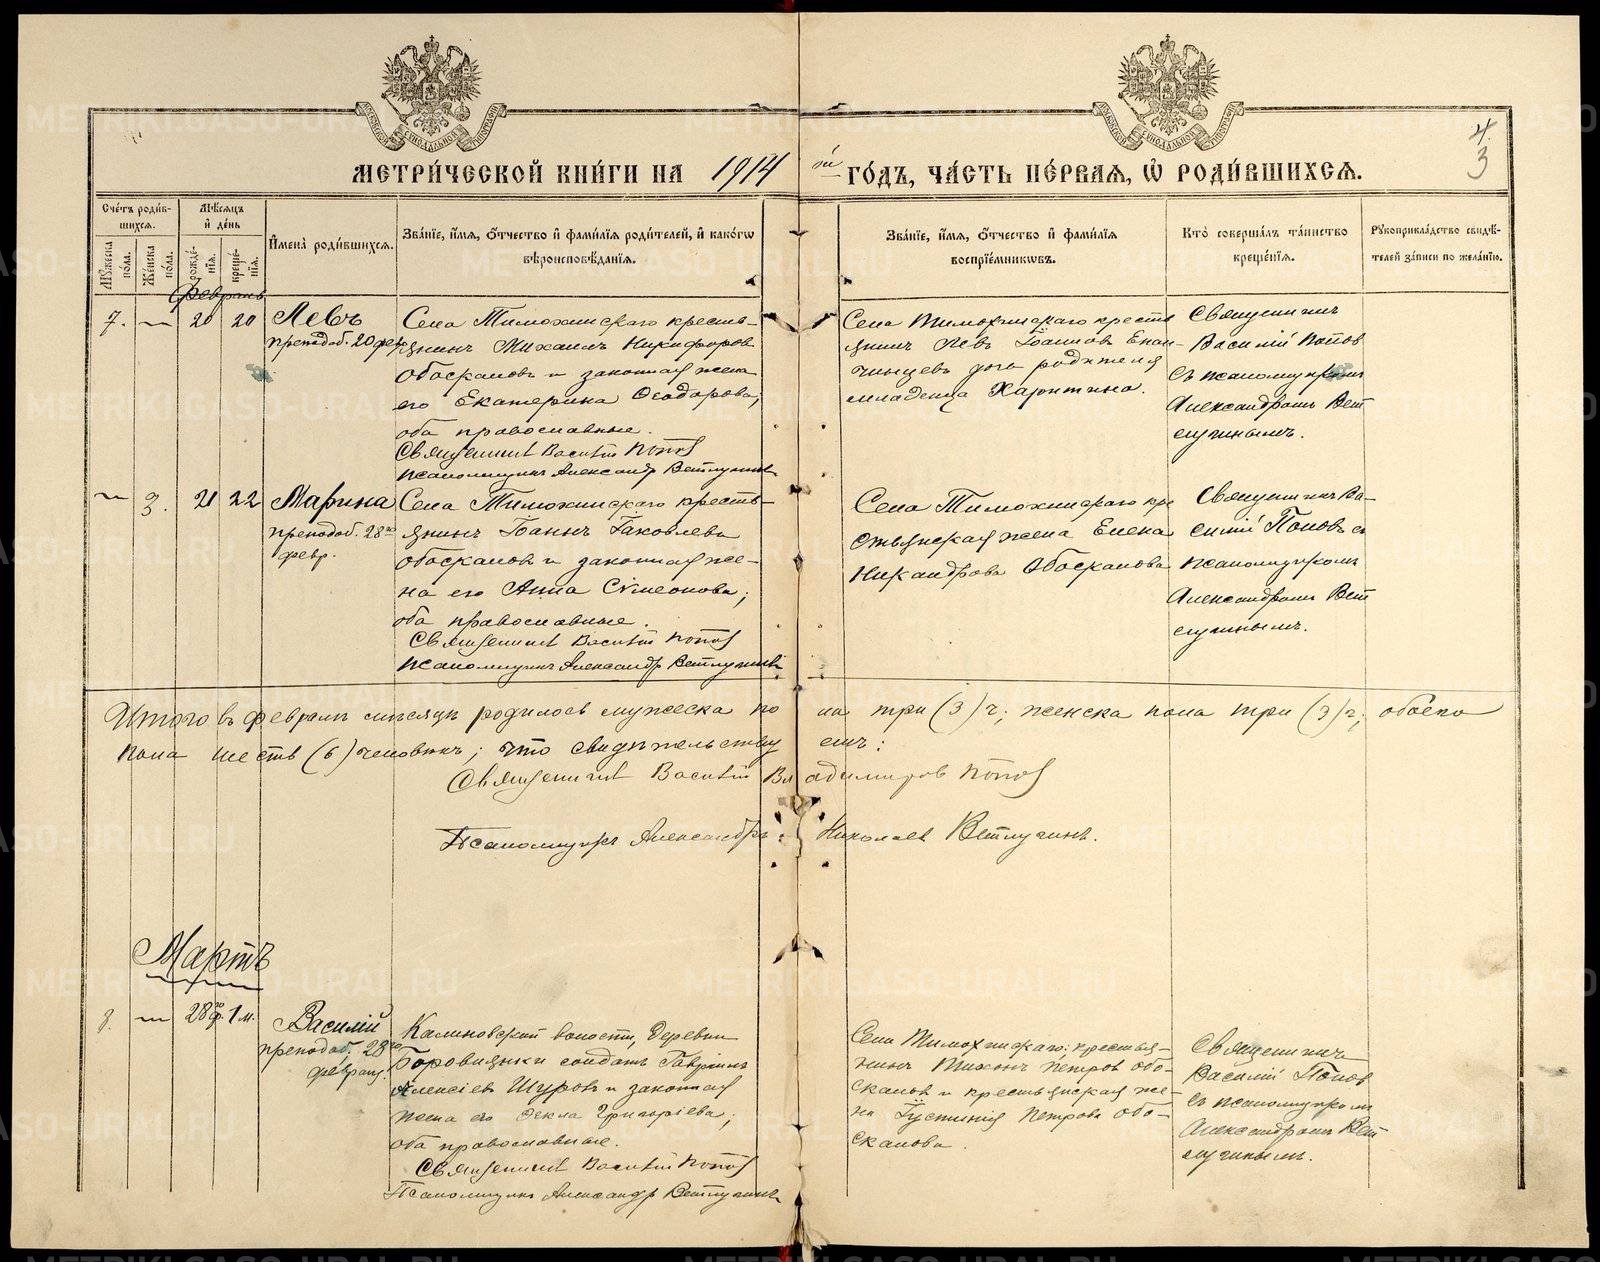 МЕТРИ́ЧЕСКОЙ КНИ́ГИ НА 1914 ой ГО́ДЪ, ЧА́СТЬ ПЕ́РВАЯ, Ѿ РОДИ́ВШИХСЯ.
4
3
Сче́тъ роди́в-
шихся.
Мѣ́сяцъ
и де́нь
Мꙋ́жеска
по́ла.
Же́нска
по́ла.
рожде́-
нія.
креще́-
нія.
Имена̀ роди́вшихся.
Зва́ніе, и́мя, о́тчество и фами́лія роди́телей, и како́гѡ
вѣроисповѣ́данія.
Зва́ніе, и́мя, о́тчество и фами́лія
воспріе́мникѡвъ.
Кто̀ соверша́лъ та́инство
креще́нія.
Рꙋкоприкла́дство свидѣ́-
телей за́писи по жела́нію.
Февраль
7. — 20 20 Левъ
преподоб. 20 фев.
Села Тимохинскаго кресть-
янинъ Михаилъ Никифоровъ
Обоскаловъ и законная жена
его Екатерина Ѳеодорова,
оба православные.
Священникъ Василій Поповъ
Псаломщикъ Александръ Ветлугинъ
Села Тимохинскаго кресть
янинъ Левъ Іоанновъ
дочь родителя
младенца Харитина.
Священникъ
Василій Поповъ
съ псаломщикомъ
Александромъ Вет
лугинымъ.
— 3. 21 22 Марина
преподоб. 28го
февр.
Села Тимохинскаго кресть-
янинъ Іоаннъ Іаковлевъ
Обоскаловъ и законная же-
на его Анна Сѵмеонова;
оба православные.
Священникъ Василій Поповъ
Псаломщикъ Александръ Ветлугинъ
Села Тимохинскаго кре
стьянская жена Елена
Никандрова Обоскалова
Священникъ Ва-
силій Поповъ съ
псаломщикомъ
Александромъ Вет
лугинымъ.
Итого въ февралѣ мѣсяцѣ родилось мужеска по ла три (3) ч.; женска пола три (3) ч; обоего
пола шесть (6) человѣкъ; что свидѣтельству емъ:
Священникъ Василій Вл адимировъ Поповъ
Псаломщикъ Александръ Николаевъ Ветлугинъ.
Мартъ
8. — 28го ф. 1 м. Василій
преподоб. 28го
февраля
Калиновской волости, деревни
Боровлянки солдатъ Гавріилъ
Алексіевъ Шуровъ и законная
жена его Ѳекла Григоріева;
оба православные.
Священникъ Василій Поповъ
Псаломщикъ Александръ Ветлугинъ
Села Тимохинскаго: крестья-
нинъ Тихонъ Петровъ Обо-
скаловъ и крестьянская же-
на Іустинія Петрова Обо-
скалова.
Священникъ
Василій Поповъ
съ псаломщикомъ
Александромъ Вет-
лугинымъ.
METRIKI.GASO-URAL.RU